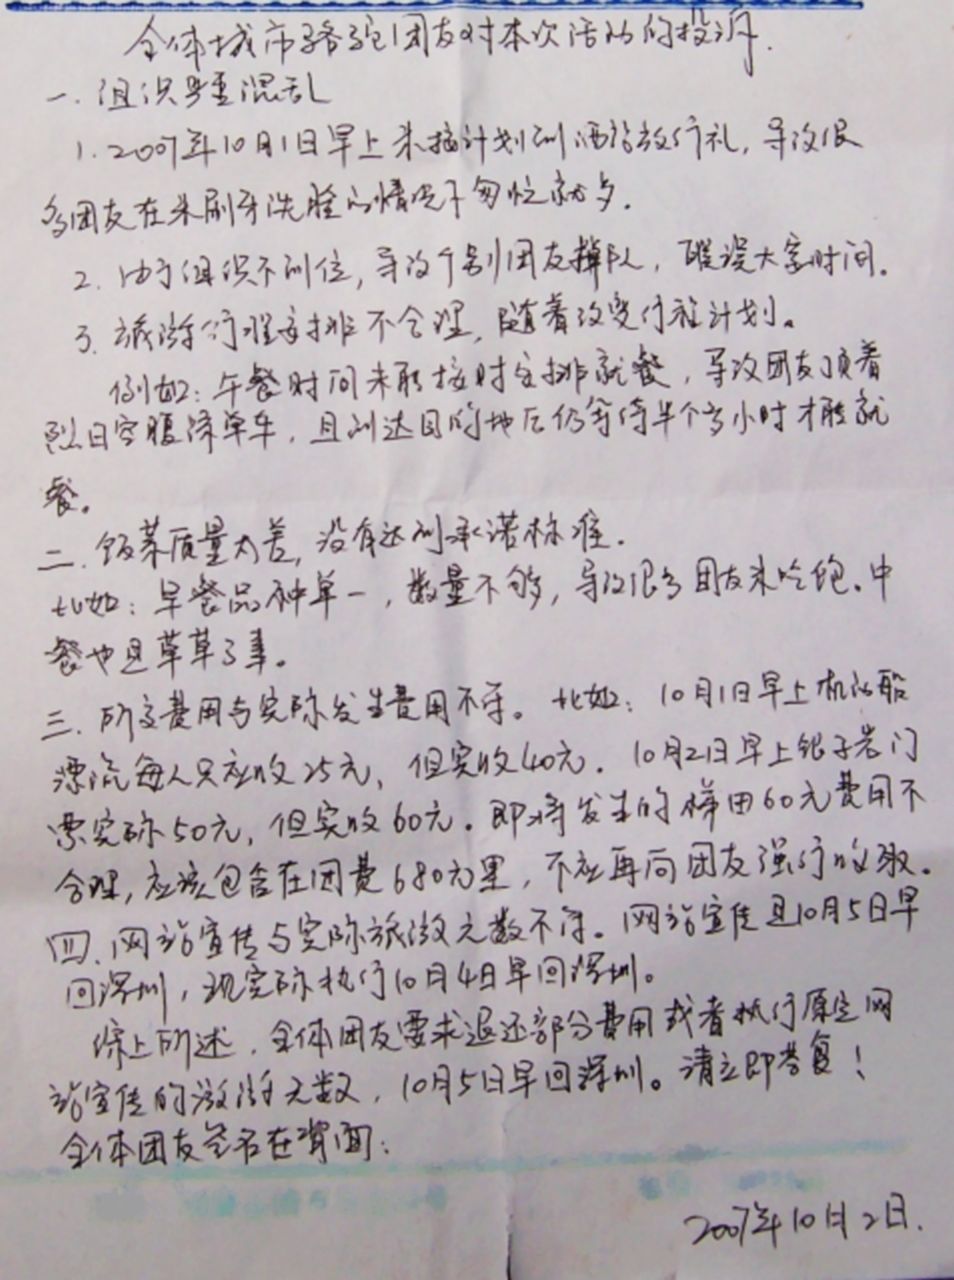 全体城市骆驼团友对本次活动的投诉.
一.组织严重混乱
1.2007年10月1日早上未按计划到酒店放行礼,导致很
多团友在未刷牙洗脸的情况下匆忙就点.
2.由于组织不到位,导致个别团友掉队,耽误大家时间.
3.旅游行程安排不合理,随着改变行程计划。
例如:午餐时间未能按时安排就餐,导致团友顶着
烈日空腹踩单车,且到达目的地后仍等待半个多小时才能就
餐。
二.饭菜质量太差,没有达到承诺标准.
比如:早餐品种单一,数量不够,导致很多团友未吃饱.中
餐也且草草了事。
三.所交费用与实际发生费用不符。比如:10月1日早上机动船
漂流每人只应收25元,但实收40元.10月2日早上银子岩门
票实际50元,但实收60元.即将发生的梯田60元费用不
合理,应该包含在团费680元里,不应再向团友强行收取。
四.网站宣传与实际旅游天数不符。网站宣传且10月5日早
回深圳,现实际执行10月4日早回深圳。
综上所述,全体团友要求退还部分费用或者执行原定网
站宣传的旅游天数,10月5日早回深圳。请立即答复!
全体团友签名在背面:
2007年10月2日.